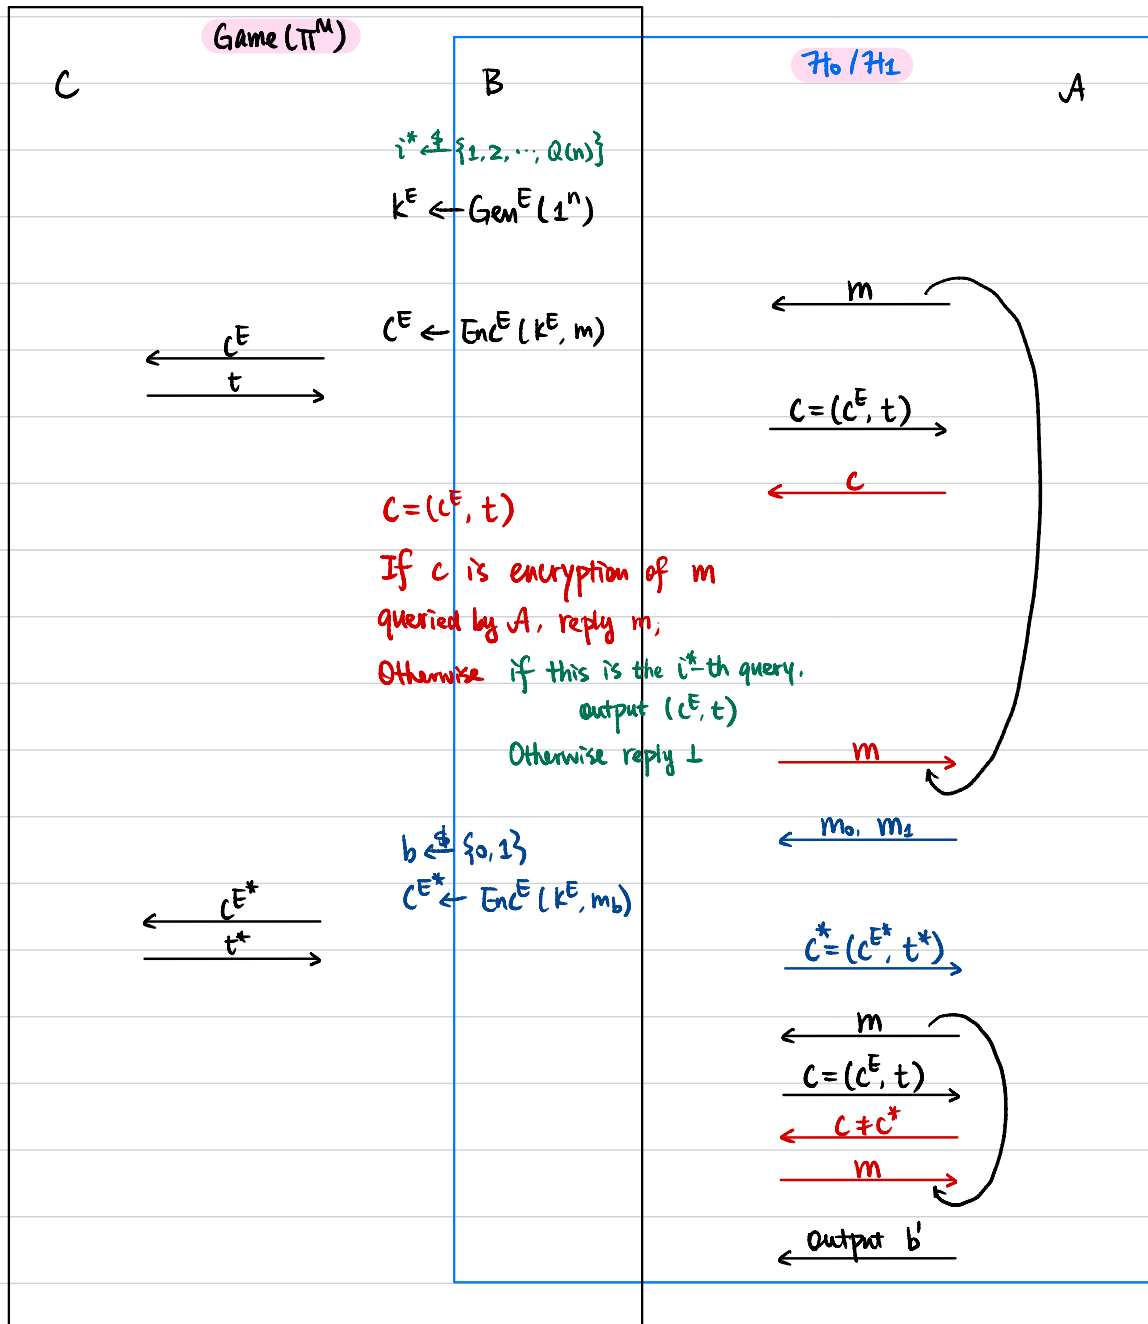 Game(Π^M)
H₀/H₁
C
B
A
i* ←$ {1,2,···, Q(n)}
k^E ← Gen^E(1^n)
m
C^E ← Enc^E(k^E, m)
C^E
t
C=(C^E, t)
C
C=(C^E, t)
If c is encryption of m
queried by A, reply m;
Otherwise if this is the i*-th query,
output (C^E, t)
Otherwise reply ⊥
m
m₀, m₁
b ←$ {0,1}
C^E* ← Enc^E(k^E, m_b)
C^E*
t*
C*=(C^E*, t*)
m
C=(C^E, t)
C≠C*
m
output b'